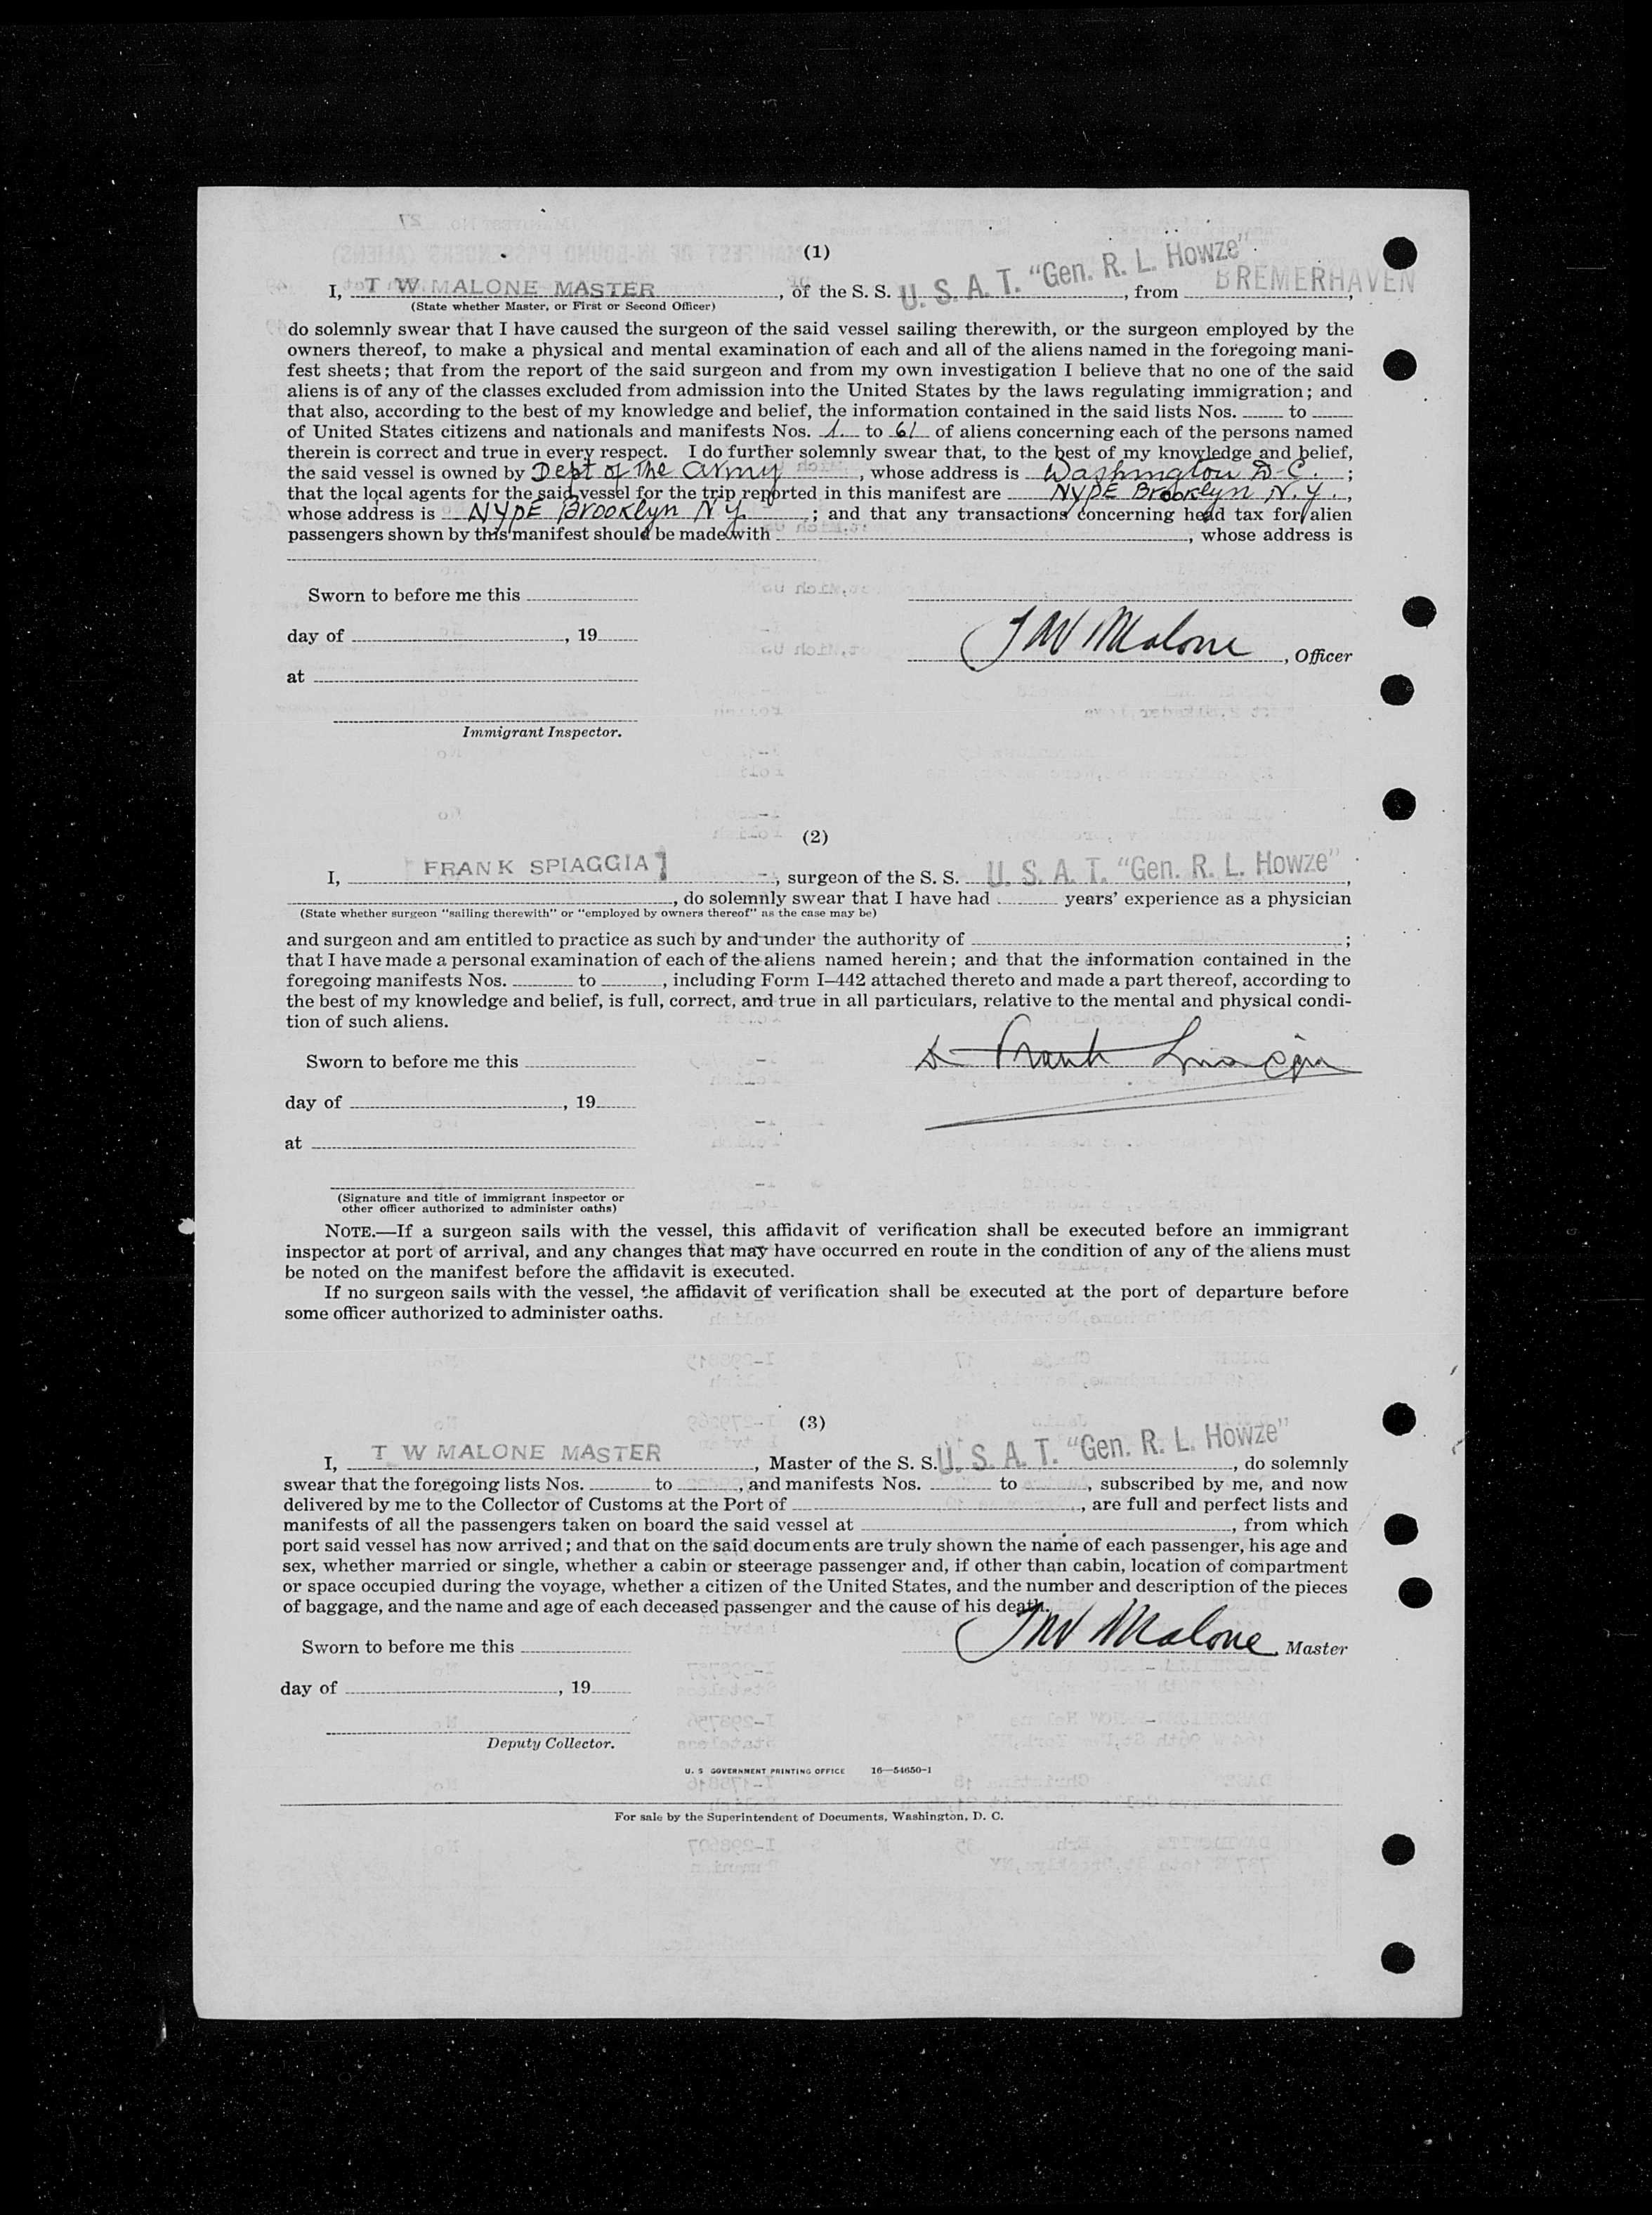 (1)
I, T W MALONE MASTER, of the S. S. U. S. A. T. "Gen. R. L. Howze", from BREMERHAVEN,
(State whether Master, or First or Second Officer)
do solemnly swear that I have caused the surgeon of the said vessel sailing therewith, or the surgeon employed by the
owners thereof, to make a physical and mental examination of each and all of the aliens named in the foregoing mani-
fest sheets; that from the report of the said surgeon and from my own investigation I believe that no one of the said
aliens is of any of the classes excluded from admission into the United States by the laws regulating immigration; and
that also, according to the best of my knowledge and belief, the information contained in the said lists Nos. to
of United States citizens and nationals and manifests Nos. 1 to 61 of aliens concerning each of the persons named
therein is correct and true in every respect. I do further solemnly swear that, to the best of my knowledge and belief,
the said vessel is owned by Dept of The Army, whose address is Washington D. C. ;
that the local agents for the said vessel for the trip reported in this manifest are NYPE Brooklyn N. Y. ,
whose address is NYPE Brooklyn N Y. ; and that any transactions concerning head tax for alien
passengers shown by this manifest should be made with , whose address is
Sworn to before me this
day of , 19
T W Malone, Officer
at
Immigrant Inspector.
(2)
I, FRANK SPIAGGIA, surgeon of the S. S. U. S. A. T. "Gen. R. L. Howze",
, do solemnly swear that I have had years' experience as a physician
(State whether surgeon "sailing therewith" or "employed by owners thereof" as the case may be)
and surgeon and am entitled to practice as such by and under the authority of ;
that I have made a personal examination of each of the aliens named herein; and that the information contained in the
foregoing manifests Nos. to , including Form I-442 attached thereto and made a part thereof, according to
the best of my knowledge and belief, is full, correct, and true in all particulars, relative to the mental and physical condi-
tion of such aliens.
Sworn to before me this
Frank
day of , 19
at
(Signature and title of immigrant inspector or
other officer authorized to administer oaths)
NOTE.—If a surgeon sails with the vessel, this affidavit of verification shall be executed before an immigrant
inspector at port of arrival, and any changes that may have occurred en route in the condition of any of the aliens must
be noted on the manifest before the affidavit is executed.
If no surgeon sails with the vessel, the affidavit of verification shall be executed at the port of departure before
some officer authorized to administer oaths.
(3)
I, T W MALONE MASTER, Master of the S. S. U. S. A. T. "Gen. R. L. Howze", do solemnly
swear that the foregoing lists Nos. to , and manifests Nos. to , subscribed by me, and now
delivered by me to the Collector of Customs at the Port of , are full and perfect lists and
manifests of all the passengers taken on board the said vessel at , from which
port said vessel has now arrived; and that on the said documents are truly shown the name of each passenger, his age and
sex, whether married or single, whether a cabin or steerage passenger and, if other than cabin, location of compartment
or space occupied during the voyage, whether a citizen of the United States, and the number and description of the pieces
of baggage, and the name and age of each deceased passenger and the cause of his death.
Sworn to before me this
T W Malone Master
day of , 19
Deputy Collector.
U. S. GOVERNMENT PRINTING OFFICE 16—54650-1
For sale by the Superintendent of Documents, Washington, D. C.